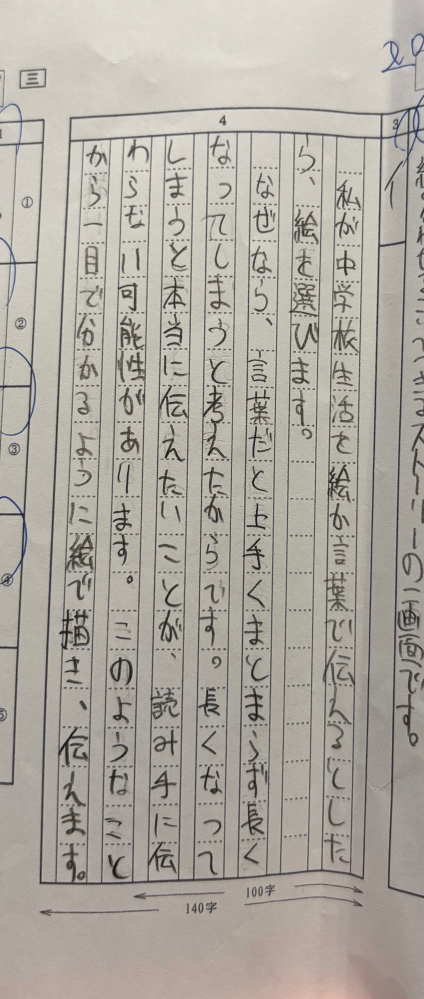 できるストーリーの一画面です。
3
イ
4
私が中学校生活を絵か言葉で伝えるとした
ら、絵を選びます。
なぜなら、言葉だと上手くまとまらず長く
なってしまうと考えたからです。長くなって
しまうと本当に伝えたいことが、読み手に伝
わらない可能性があります。このようなこと
から一目で分かるように絵で描き、伝えます。
100字
140字
三
①
②
③
④
⑤